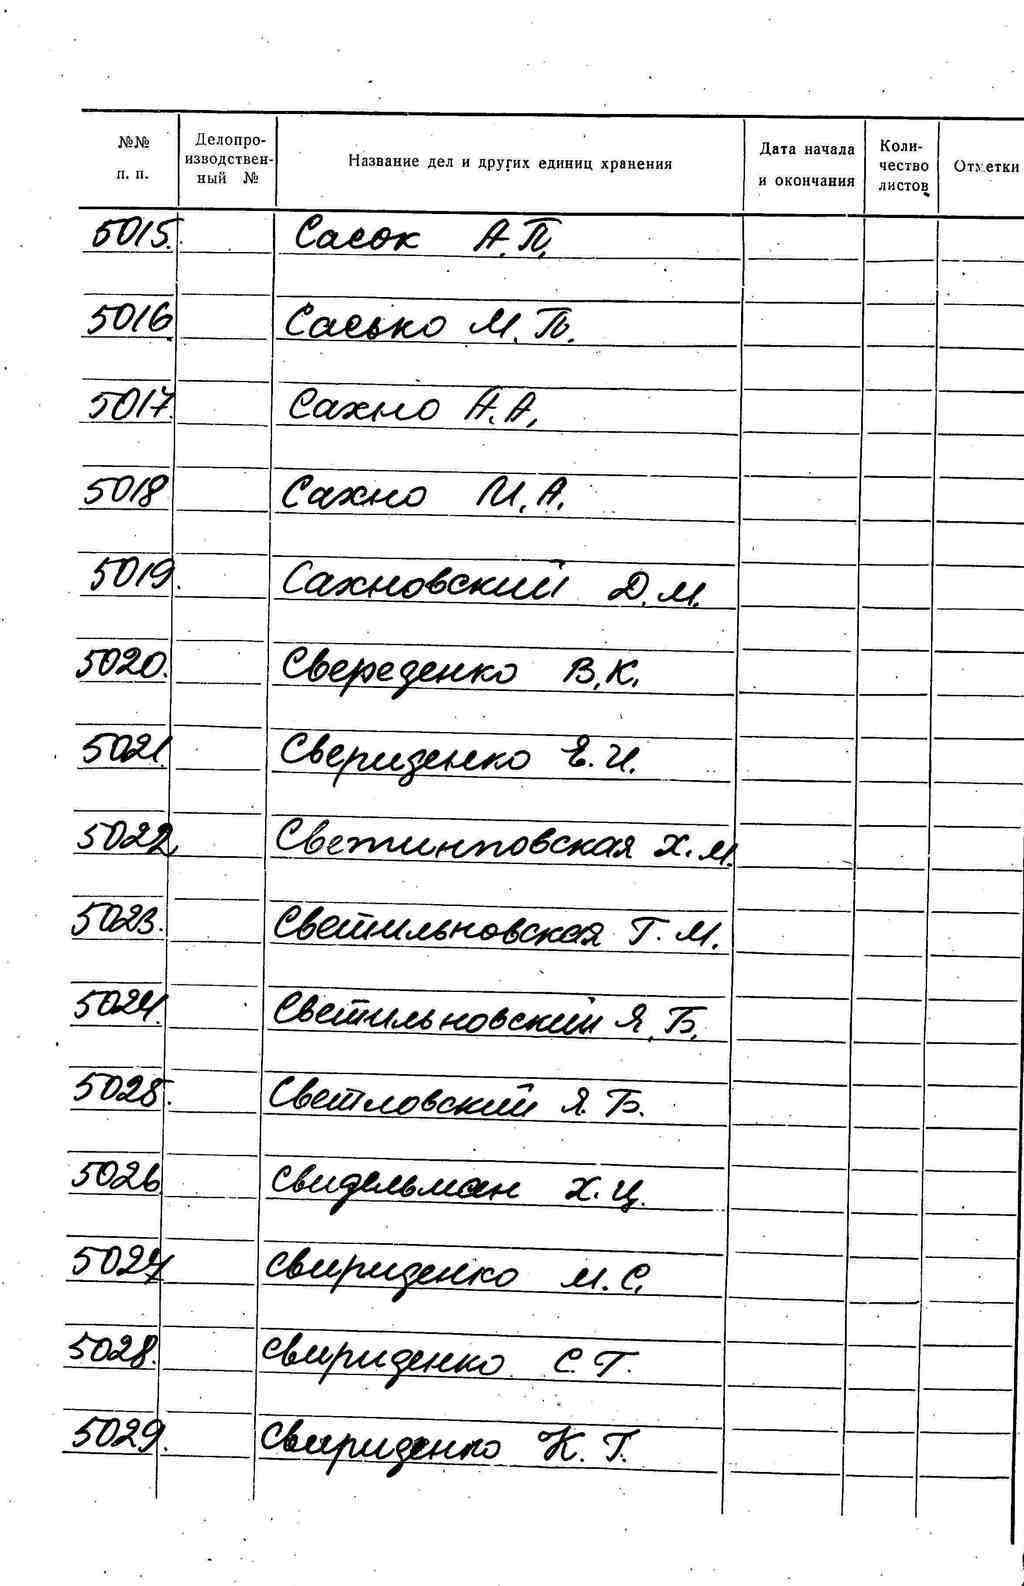 №№ п. п. Делопроизводственный № Название дел и других единиц хранения Дата начала и окончания Количество листов Отметки
5015. Сасок А.П.
5016 Сасько М.П.
5017. Сахно А.А.
5018 Сахно М.А.
5019. Сахновский Д.М.
5020. Свереденко В.К.
5021. Свериденко Е.И.
5022 Светинповская Х.М.
5023. Светильновская Г.М.
5024. Светильновский Я.Б.
5025. Светловский Я.Б.
5026 Свидельман Х.Ц.
5027 Свириденко М.С.
5028. Свириденко С.Г.
5029. Свириденко К.Г.